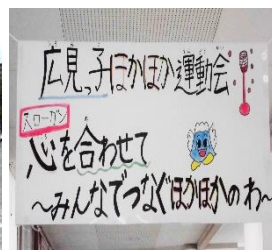 広見っ子ほかほか運動会
スローガン
心を合わせて
～みんなでつなぐほかほかのわ～